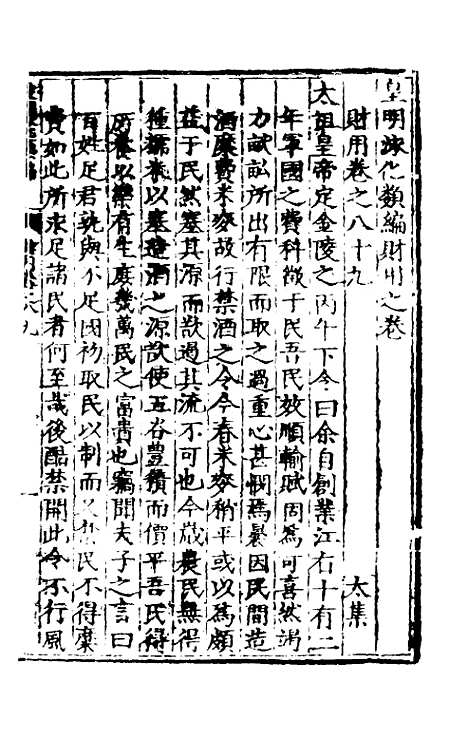 皇明泳化類編財用之卷
財用卷之八十九 太集
太祖皇帝定金陵之丙午下令曰余自創業江右十有二
年軍國之費科徵于民吾民效順輸賦固為可喜然竭
力畝訟所出有限而取之過重心甚憫焉曩因民間造
酒糜費米麥故行禁酒之令今春米麥稍平或以為頗
益于民然塞其源而欲遏其流不可也今歲農民無得
種糯米以塞造酒之源欲使五谷豊積而價平吾民得
所養以樂有生庶幾萬民之富貴也竊聞夫子之言曰
百姓足君孰與不足國初取民以制而又禁民不得糜
費如此所求足諸民者何至哉後酷禁開此令不行風